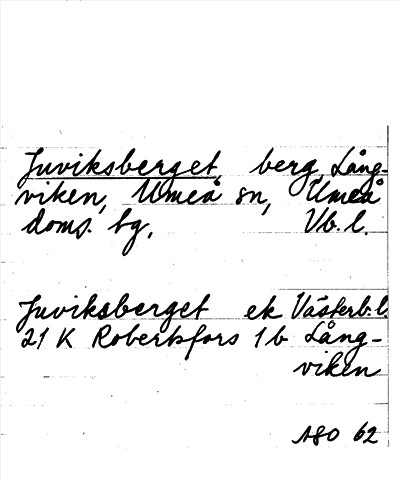 Juviksberget, berg, Lång-
viken, Umeå sn, Umeå
doms. bg. Vb. l.
Juviksberget ek Västerb.l.
21 K Robertsfors 1b Lång-
viken
ASO 62